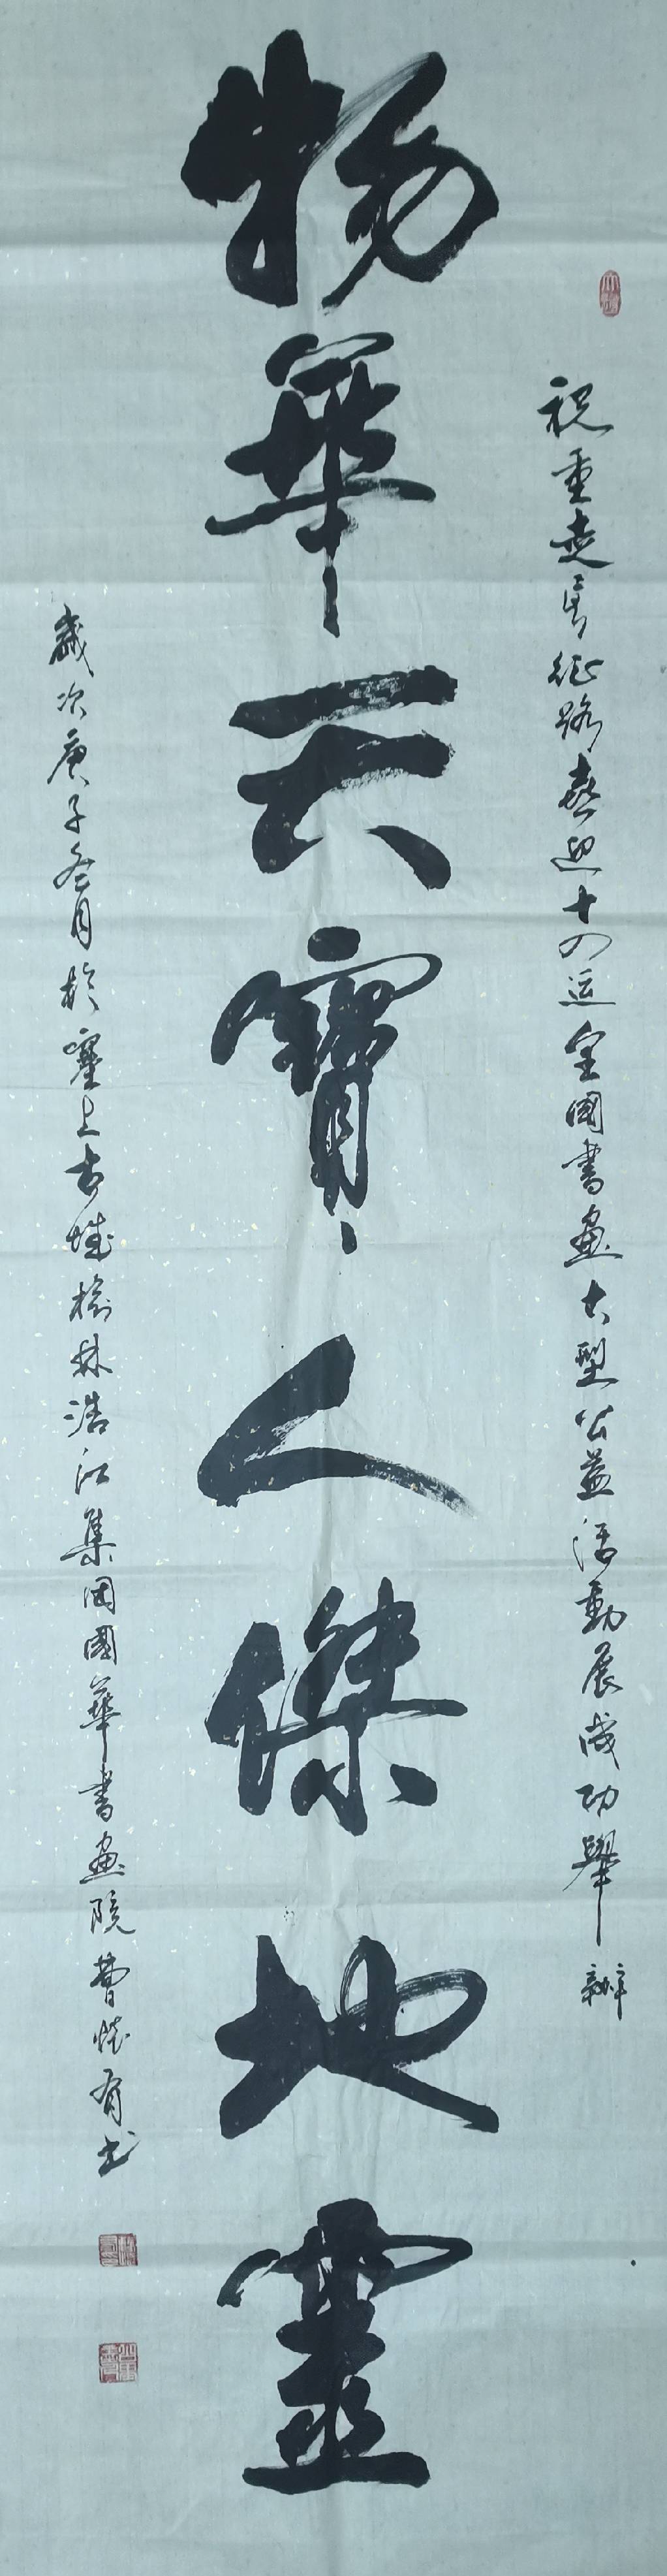 祝重走長征路喜迎十四运全國書畫大型公益活動展成功舉辦
物華天寳人傑地靈
歲次庚子冬月於塞上古城榆林浩江集团國華書畫院曹懷有书